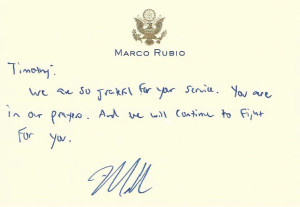 MARCO RUBIO
Timothy-
We are so grateful for your service. You are
in our prayers. And we will continue to Fight
For you.